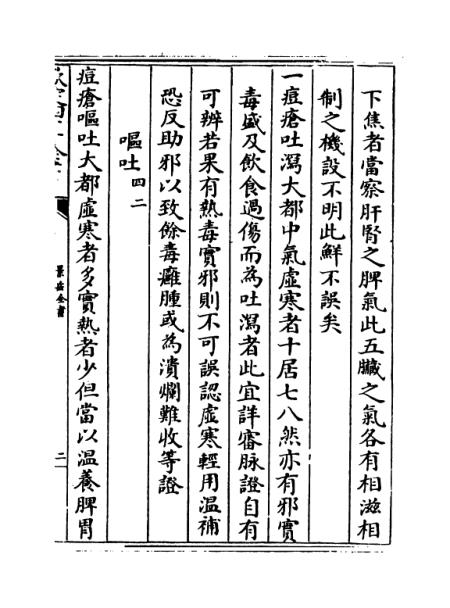 下焦者當察肝腎之脾氣此五臟之氣各有相滋相
制之機設不明此鮮不誤矣
一痘瘡吐瀉大都中氣虛寒者十居七八然亦有邪實
毒盛及飲食過傷而為吐瀉者此宜詳審脉證自有
可辨若果有熱毒實邪則不可誤認虛寒輕用溫補
恐反助邪以致餘毒癰腫或為潰爛難收等證
嘔吐四二
痘瘡嘔吐大都虛寒者多實熱者少但當以溫養脾胃
景岳全書
二